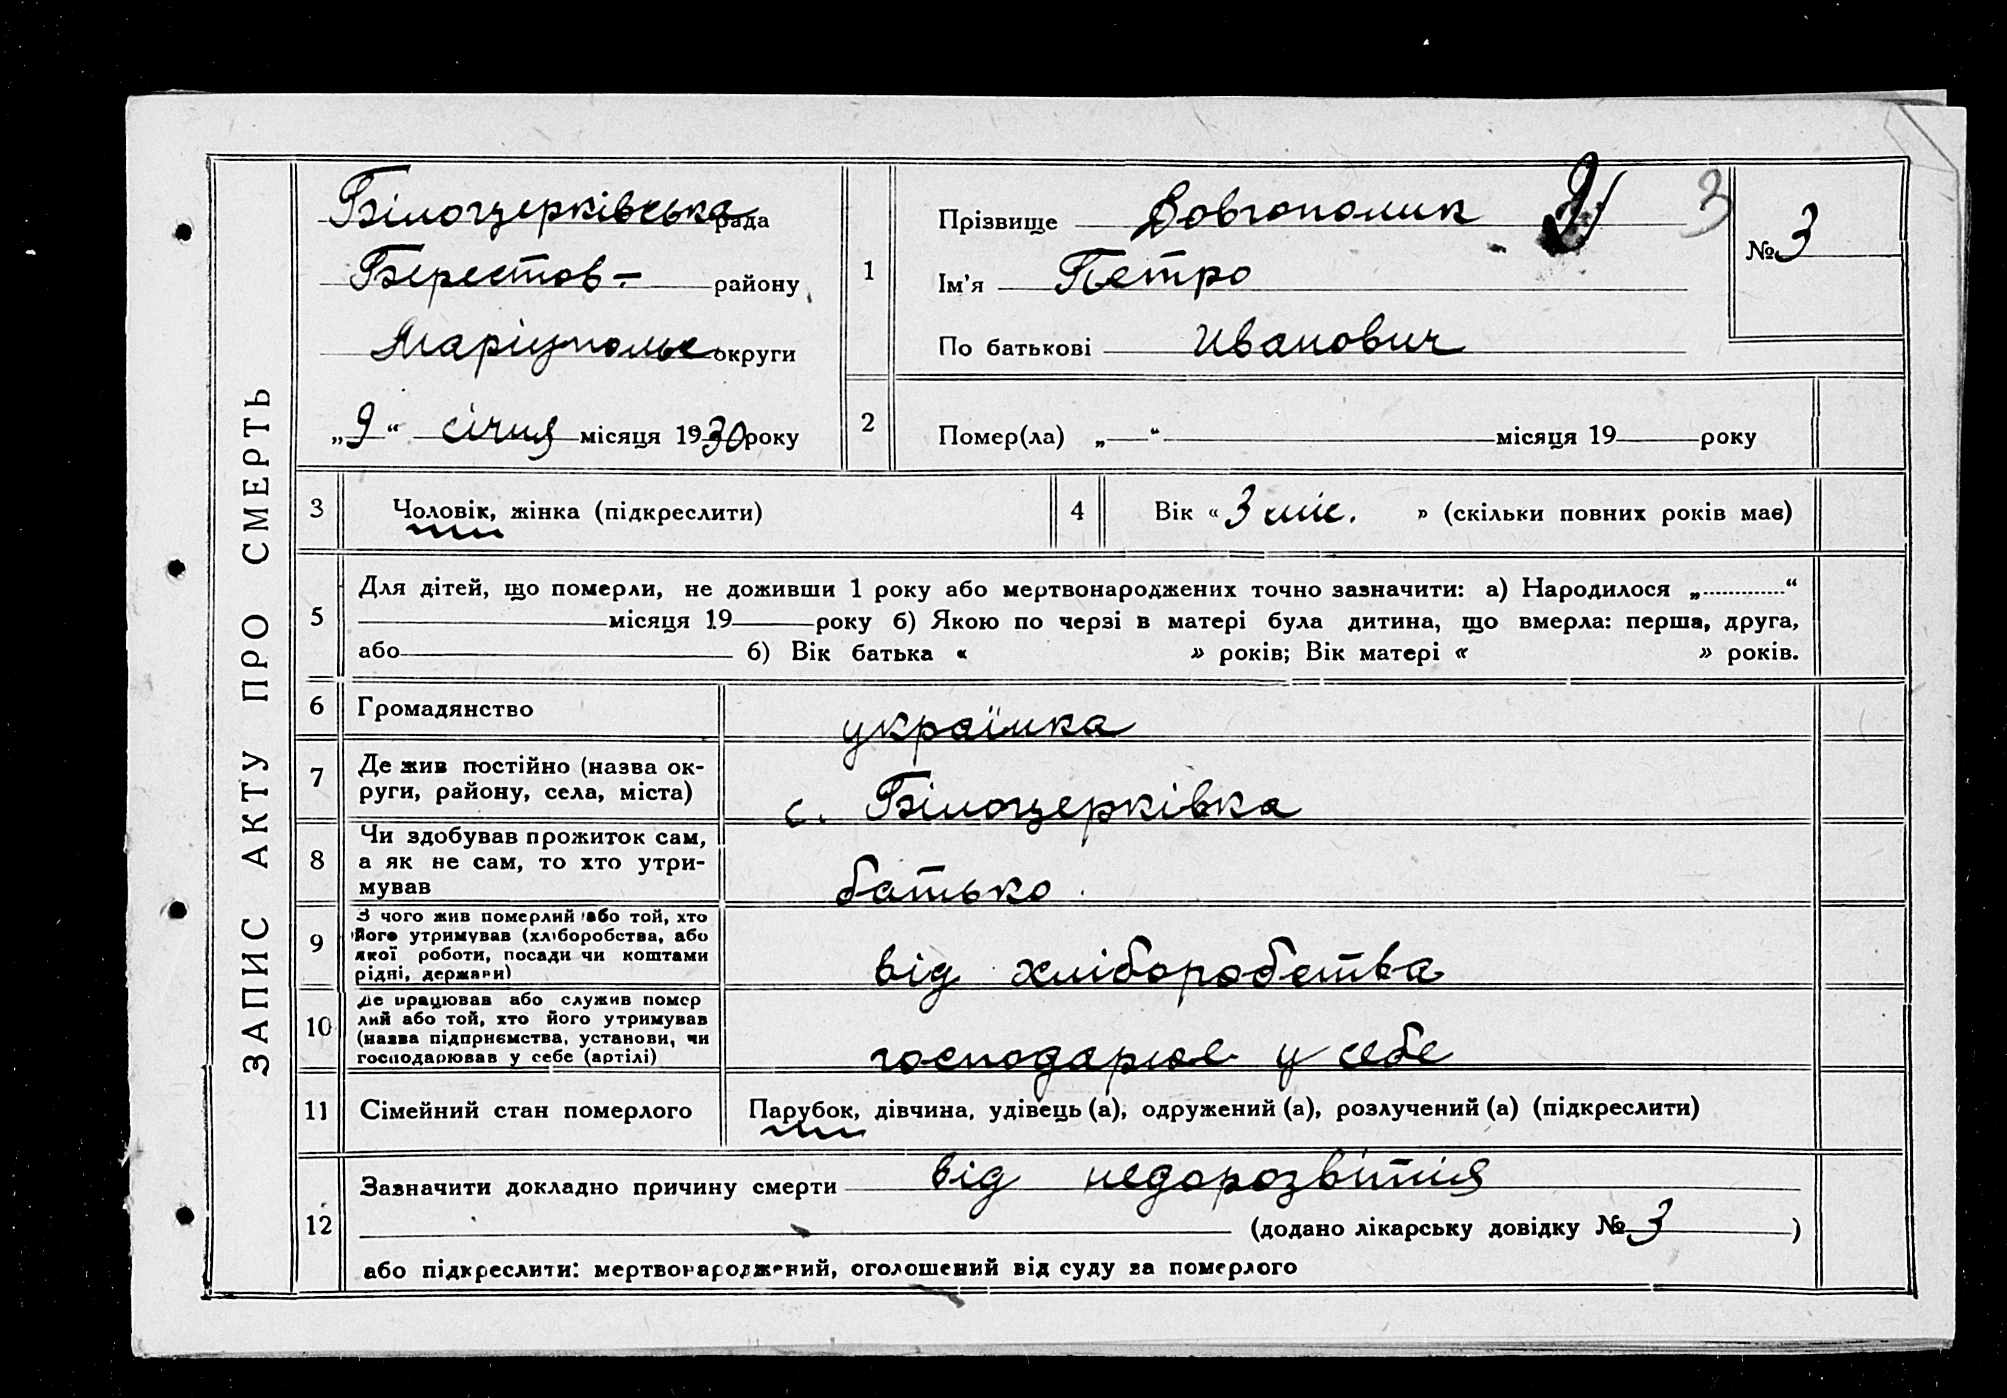 ЗАПИС АКТУ ПРО СМЕРТЬ
Білоцерківська рада
Берестов- району
Маріупольс округи
„9“ січня місяця 1930 року
1
Прізвище Довгополик 3
Ім'я Петро
По батькові Иванович
№ 3
2
Помер(ла) „ “ місяця 19 року
3
Чоловік, жінка (підкреслити)
4
Вік « 3 міс. » (скільки повних років має)
5
Для дітей, що померли, не доживши 1 року або мертвонароджених точно зазначити: а) Народилося „ “
місяця 19 року б) Якою по черзі в матері була дитина, що вмерла: перша, друга,
або б) Вік батька « » років; Вік матері « » років.
6
Громадянство
українка
7
Де жив постійно (назва ок-
руги, району, села, міста)
с. Білоцерківка
8
Чи здобував прожиток сам,
а як не сам, то хто утри-
мував
батько
9
З чого жив померлий або той, хто
його утримував (хліборобства, або
якої роботи, посади чи коштами
рідні, держави)
від хліборобства
10
Де працював або служив помер
лий або той, хто його утримував
(назва підприємства, установи, чи
господарював у себе (артілі)
господарює у себе
11
Сімейний стан померлого
Парубок, дівчина, удівець (а), одружений (а), розлучений (а) (підкреслити)
12
Зазначити докладно причину смерти від недорозвітія
(додано лікарську довідку № 3 )
або підкреслити: мертвонароджений, оголошений від суду за померлого